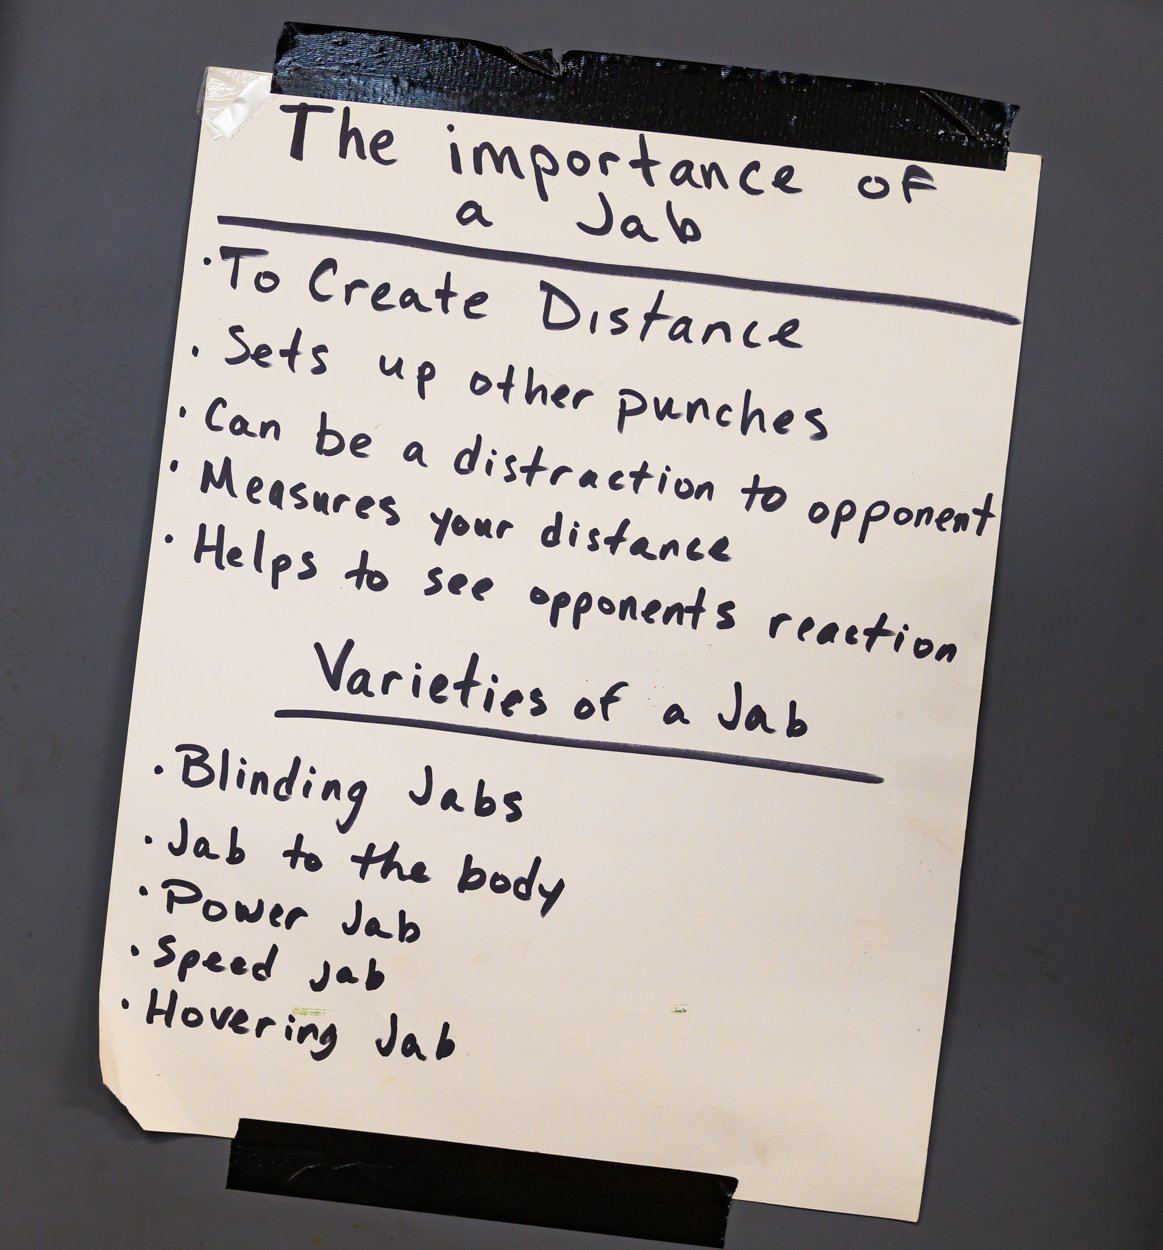 The importance of
a Jab
· To Create Distance
· Sets up other punches
· Can be a distraction to opponent
· Measures your distance
· Helps to see opponents reaction
Varieties of a Jab
· Blinding Jabs
· Jab to the body
· Power Jab
· Speed jab
· Hovering Jab